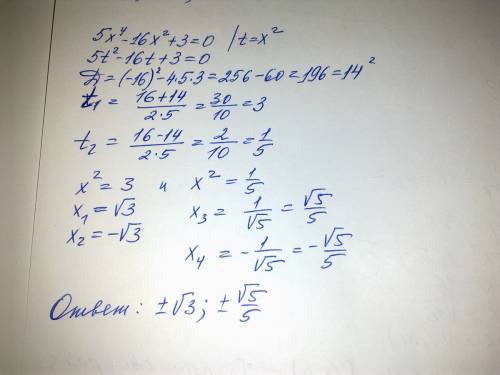 5x⁴-16x²+3=0 /t=x²
5t²-16t+3=0
D=(-16)²-4·5·3=256-60=196=14²
t₁= (16+14)/(2·5) = 30/10 =3
t₂= (16-14)/(2·5) = 2/10 = 1/5
x²=3 и x²= 1/5
x₁=√3 x₃= 1/√5 = √5/5
x₂=-√3
x₄ = - 1/√5 = - √5/5
Ответ: ±√3; ± √5/5